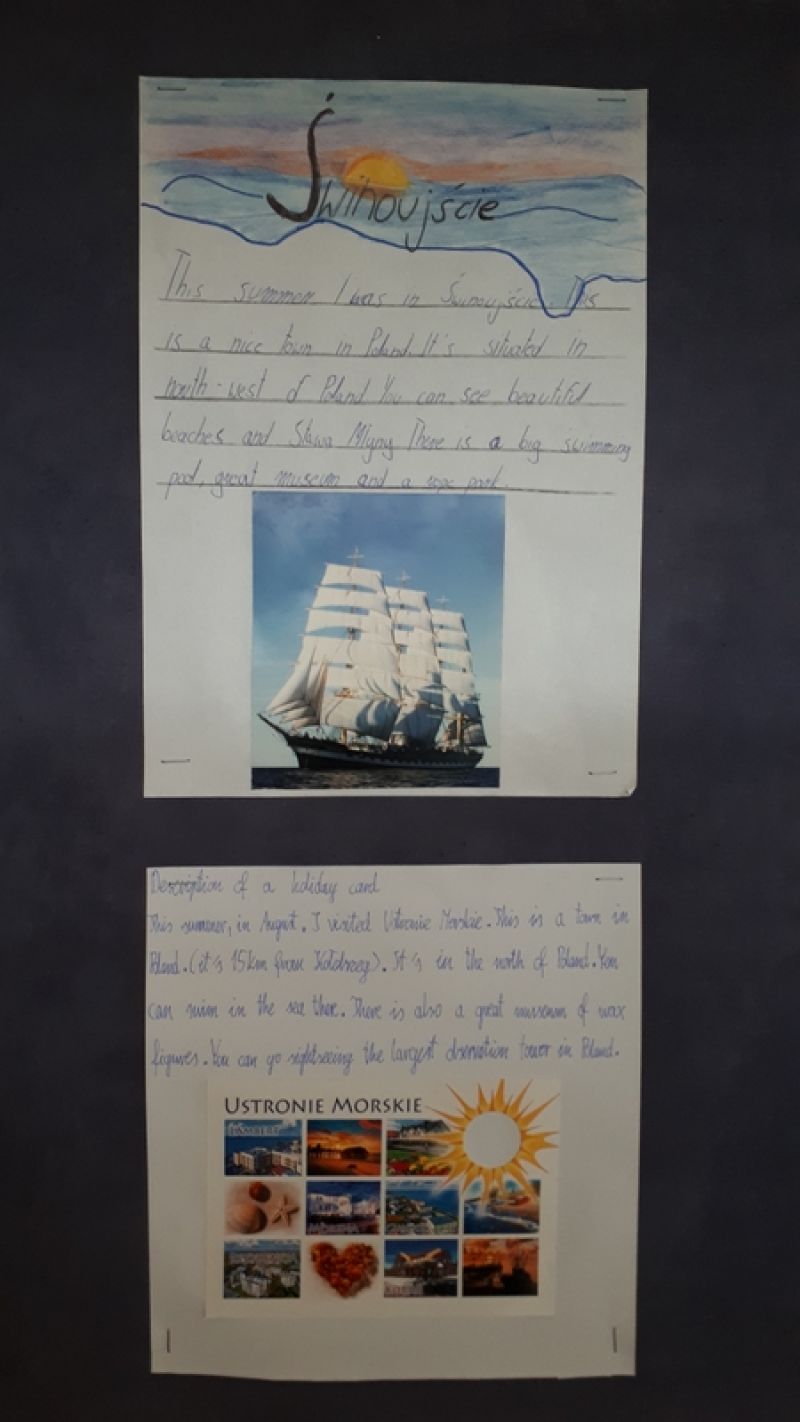 Świnoujście
This summer I was in Świnoujście. This
is a nice town in Poland. It's situated in
north-west of Poland. You can see beautiful
beaches and Stawa Młyny. There is a big swimming
pool, great museum and a rope park.
Description of a holiday card
This summer, in August. I visited Ustronie Morskie. This is a town in
Poland. (it's 15km from Kołobrzeg). It's in the north of Poland. You
can swim in the sea there. There is also a great museum of wax
figures. You can go sightseeing the largest observation tower in Poland.
USTRONIE MORSKIE